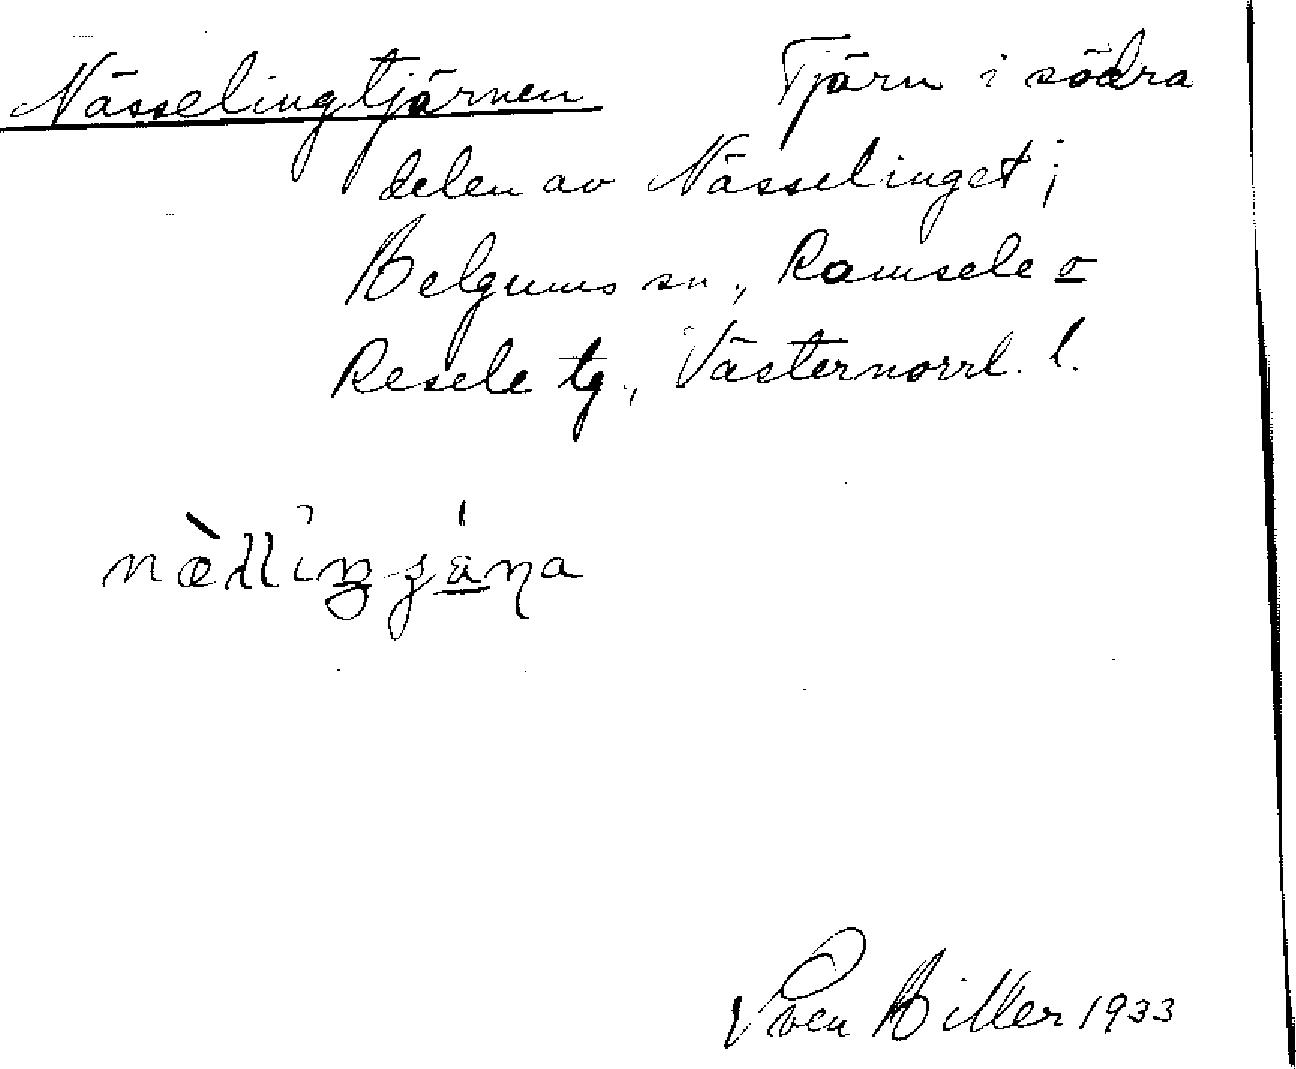 Nässelingtjärnen Tjärn i södra
delen av Nässelinget;
Helgums sn., Ramsele o
Resele tg., Västernorrl. l.
Sven Hiller 1933